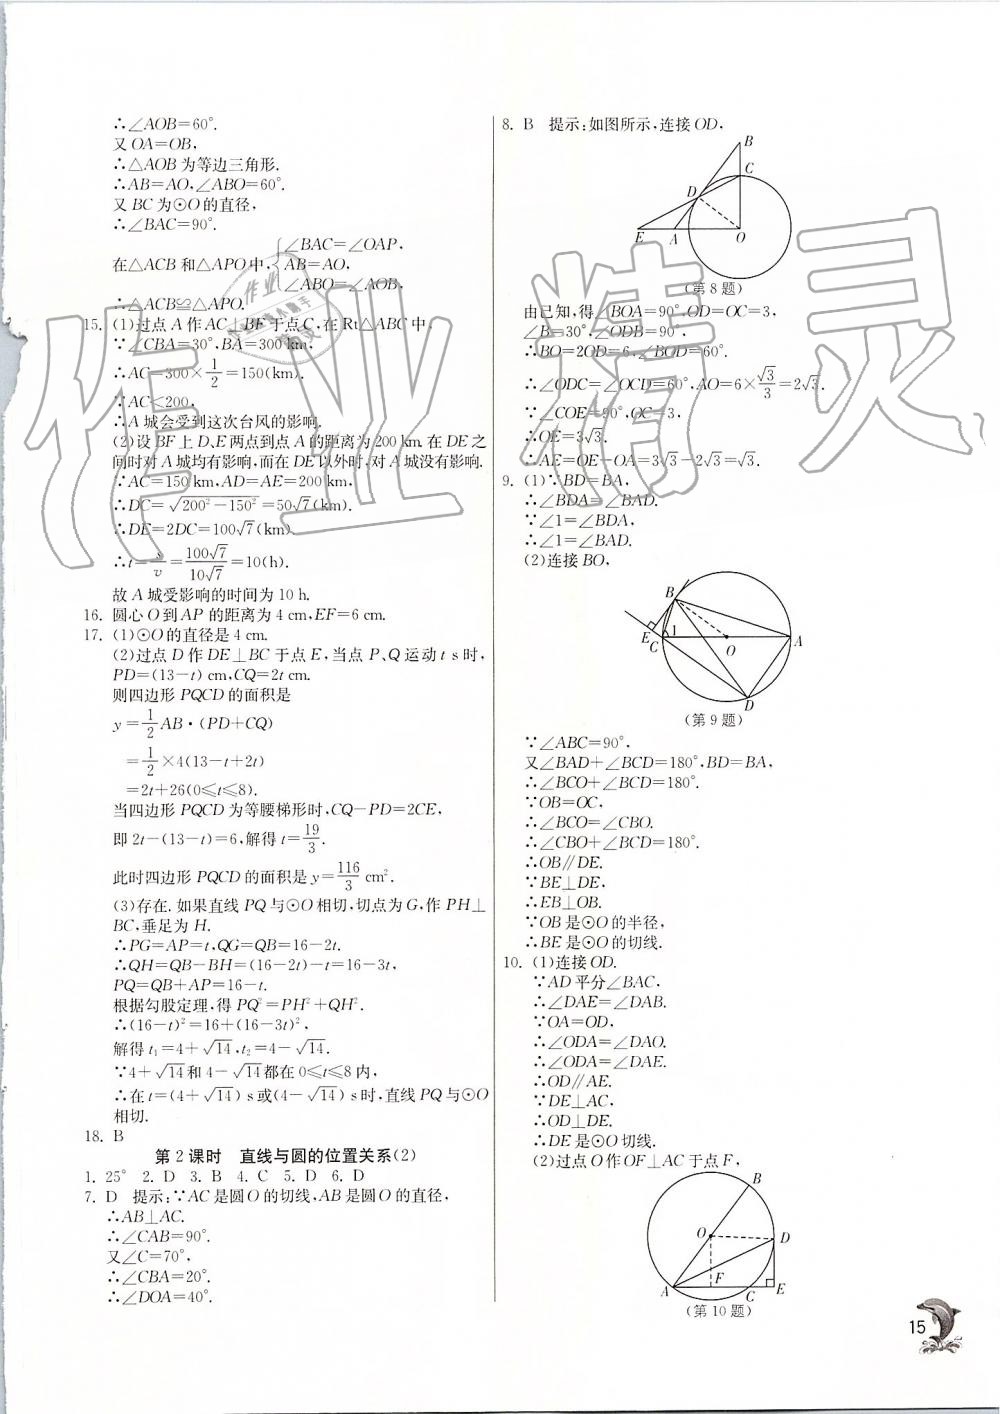 ∴∠AOB=60°.
又OA=OB,
∴△AOB为等边三角形.
∴AB=AO,∠ABO=60°.
又BC为⊙O的直径,
∴∠BAC=90°.
在△ACB和△APO中,{∠BAC=∠OAP, AB=AO, ∠ABO=∠AOB,
∴△ACB≌△APO.
15. (1)过点A作AC⊥BF于点C,在Rt△ABC中,
∵∠CBA=30°,BA=300 km,
∴AC=300×1/2=150(km).
∵AC<200,
∴A城会受到这次台风的影响.
(2)设BF上D、E两点到点A的距离为200 km.在DE之
间时对A城均有影响,而在DE以外时,对A城没有影响.
∵AC=150 km,AD=AE=200 km,
∴DC=√(200²-150²)=50√7(km).
∴DE=2DC=100√7(km).
∴t=s/v=100√7/10√7=10(h).
故A城受影响的时间为10 h.
16. 圆心O到AP的距离为4 cm,EF=6 cm.
17. (1)⊙O的直径是4 cm.
(2)过点D作DE⊥BC于点E,当点P、Q运动t s时,
PD=(13-t) cm,CQ=2t cm.
则四边形PQCD的面积是
y=1/2 AB·(PD+CQ)
=1/2×4(13-t+2t)
=2t+26(0≤t≤8).
当四边形PQCD为等腰梯形时,CQ-PD=2CE,
即2t-(13-t)=6,解得t=19/3.
此时四边形PQCD的面积是y=116/3 cm².
(3)存在.如果直线PQ与⊙O相切,切点为G,作PH⊥
BC,垂足为H.
∴PG=AP=t,QG=QB=16-2t.
∴QH=QB-BH=(16-2t)-t=16-3t,
PQ=QB+AP=16-t.
根据勾股定理,得PQ²=PH²+QH².
∴(16-t)²=16+(16-3t)²,
解得t₁=4+√14,t₂=4-√14.
∵4+√14和4-√14都在0≤t≤8内,
∴在t=(4+√14) s或(4-√14)s时,直线PQ与⊙O
相切.
18. B
第2课时 直线与圆的位置关系(2)
1. 25° 2. D 3. B 4. C 5. D 6. D
7. D 提示:∵AC是圆O的切线,AB是圆O的直径,
∴AB⊥AC.
∴∠CAB=90°.
又∠C=70°,
∴∠CBA=20°.
∴∠DOA=40°.
8. B 提示:如图所示,连接OD,
B
C
D
E A O
(第8题)
由已知,得∠BOA=90°,OD=OC=3,
∠B=30°,∠ODB=90°.
∴BO=2OD=6,∠BOD=60°.
∴∠ODC=∠OCD=60°,AO=6×√3/3=2√3.
∵∠COE=90°,OC=3,
∴OE=3√3.
∴AE=OE-OA=3√3-2√3=√3.
9. (1)∵BD=BA,
∴∠BDA=∠BAD.
∵∠1=∠BDA,
∴∠1=∠BAD.
(2)连接BO,
B
E C 1 O A
D
(第9题)
∵∠ABC=90°,
又∠BAD+∠BCD=180°,BD=BA,
∴∠BCO+∠BCD=180°.
∵OB=OC,
∴∠BCO=∠CBO.
∴∠CBO+∠BCD=180°.
∴OB∥DE.
∵BE⊥DE,
∴EB⊥OB.
∵OB是⊙O的半径,
∴BE是⊙O的切线.
10. (1)连接OD.
∵AD平分∠BAC,
∴∠DAE=∠DAB.
∵OA=OD,
∴∠ODA=∠DAO.
∴∠ODA=∠DAE.
∴OD∥AE.
∵DE⊥AC,
∴OD⊥DE.
∴DE是⊙O切线.
(2)过点O作OF⊥AC于点F,
B
O D
A F C E
(第10题)
15
作业精灵